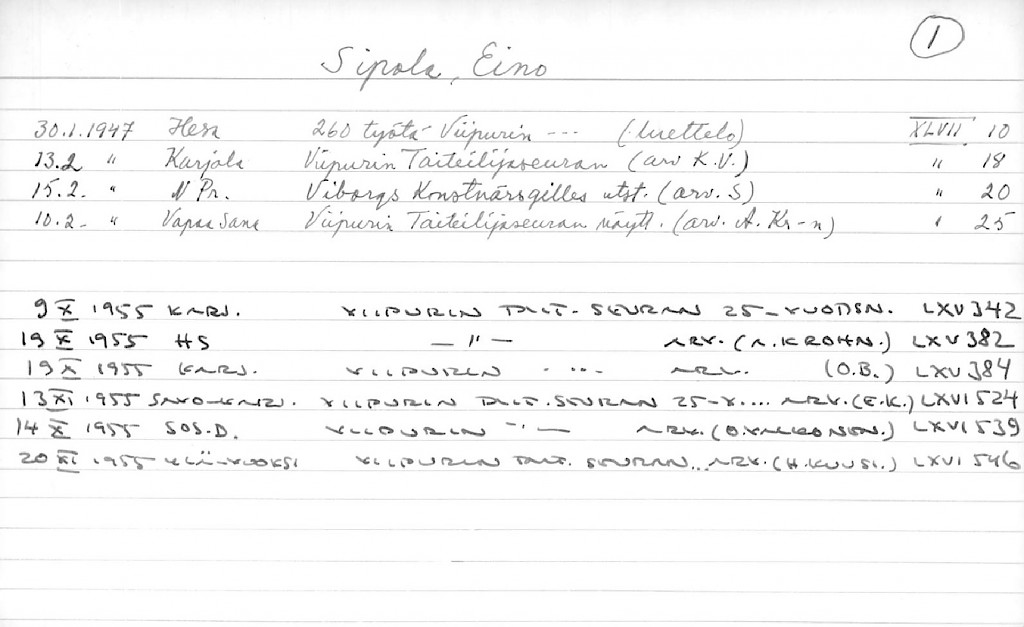 1
Sipola, Eino
30.1.1947 Hesa 260 työtä Viipurin --- (luettelo) XLVII 10
13.2 " Karjala Viipurin Taiteilijaseuran (arv K.V.) " 18
15.2. " N Pr. Viborgs Konstnärsgilles utst. (arv. S) " 20
10.2. " Vapaa Sana Viipurin Taiteilijaseuran näytt. (arv. A. Kr-n) " 25
9 X 1955 KARJ. VIIPURIN TAIT. SEURAN 25-VUOTISN. LXV 342
19 X 1955 HS — " — ARV. (A. KROHN.) LXV 382
19 X 1955 KARJ. VIIPURIN . ... ARV. (O.B.) LXV 384
13 XI 1955 SAVO-KARJ. VIIPURIN TAIT. SEURAN 25-V.... ARV. (E.K.) LXVI 524
14 X 1955 SOS-D. VIIPURIN - " — ARV. (O. VALKONEN.) LXVI 539
20 XI 1955 YLÄ-VUOKSI VIIPURIN TAIT. SEURAN... ARV. (H. KUUSI.) LXVI 546